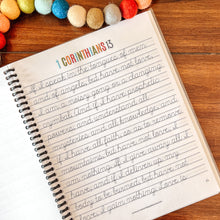 1 CORINTHIANS 13
If I speak in the tongues of men
and of angels, but have not love,
I am a noisy gong or a clanging
cymbal. And if I have prophetic
powers, and understand all
mysteries and all knowledge,
and if I have all faith, so as to remove
mountains, but have not love, I am
nothing. If I give away all I
have, and if I deliver up my
body to be burned, but have not
love, I gain nothing. Love is